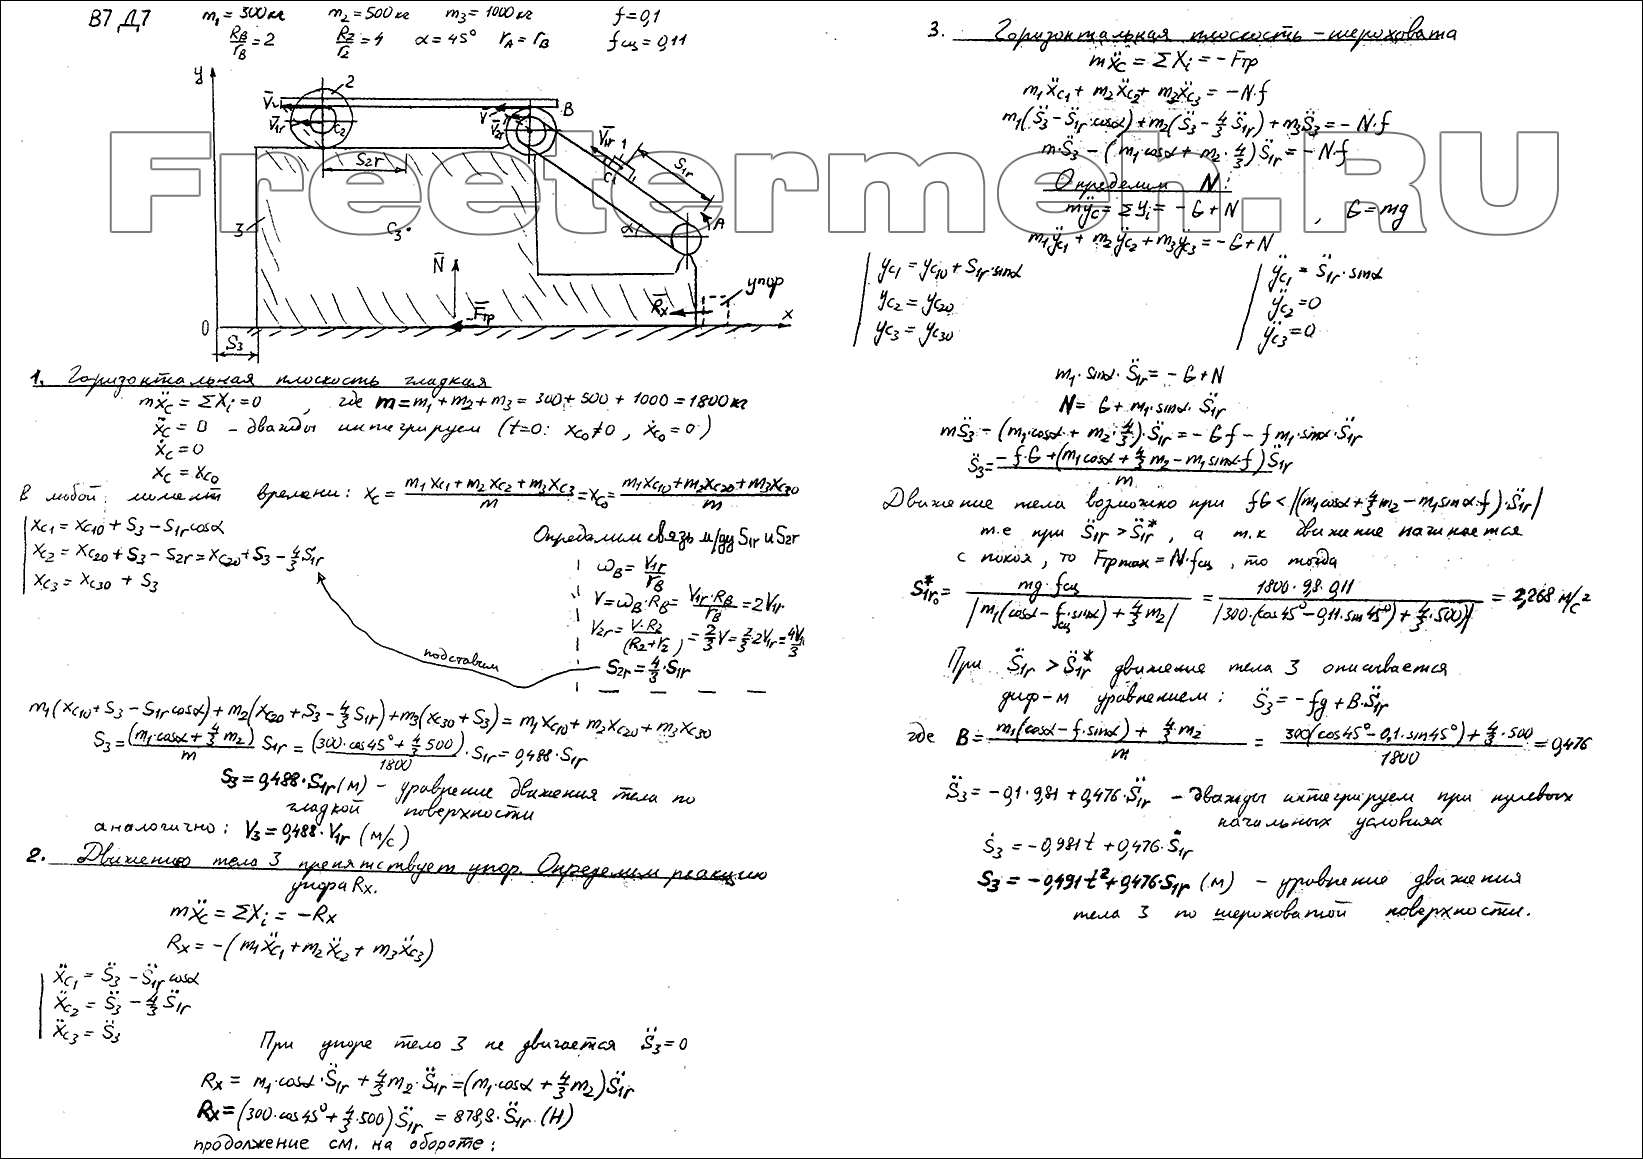 В7 Д7
m₁ = 300кг m₂ = 500кг m₃ = 1000кг f = 0,1
R_B/r_B = 2 R₂/r₂ = 4 α = 45° r_A = r_B f_сц = 0,11
y
2
V̄
V̄₁r
C₂
S₂r
V̄
V̄₂r
B
V̄₁r
1
C₁
S₁r
α
A
3
C₃
N̄
F̄тр
R̄x
упор
x
0
S₃
Freetermeh.RU
1. Горизонтальная плоскость гладкая
mẍ_C = ΣXᵢ = 0, где m = m₁ + m₂ + m₃ = 300 + 500 + 1000 = 1800кг
ẍ_C = 0 – дважды интегрируем (t=0: x_C₀ ≠ 0, ẋ_C₀ = 0)
ẋ_C = 0
x_C = x_C₀
в любой момент времени: x_C = (m₁x_C₁ + m₂x_C₂ + m₃x_C₃)/m = x_C₀ = (m₁x_C₁₀ + m₂x_C₂₀ + m₃x_C₃₀)/m
x_C₁ = x_C₁₀ + S₃ – S₁r cosα
x_C₂ = x_C₂₀ + S₃ – S₂r = x_C₂₀ + S₃ – 4/3 S₁r
x_C₃ = x_C₃₀ + S₃
Определим связь м/ду S₁r и S₂r
ω_B = V₁r/r_B
V = ω_B·R_B = V₁r·R_B/r_B = 2V₁r
V₂r = V·R₂/(R₂+r₂) = 2/3 V = 2/3·2V₁r = 4V₁/3
S₂r = 4/3·S₁r
подставим
m₁(x_C₁₀ + S₃ – S₁r cosα) + m₂(x_C₂₀ + S₃ – 4/3 S₁r) + m₃(x_C₃₀ + S₃) = m₁x_C₁₀ + m₂x_C₂₀ + m₃x_C₃₀
S₃ = (m₁cosα + 4/3 m₂)/m S₁r = (300·cos45° + 4/3 500)/1800 · S₁r = 0,488·S₁r
S₃ = 0,488·S₁r (м) – уравнение движения тела по
гладкой поверхности
аналогично: V₃ = 0,488·V₁r (м/с)
2. Движению тела 3 препятствует упор. Определим реакцию
упора Rx.
mẍ_C = ΣXᵢ = –Rx
Rx = –(m₁ẍ_C₁ + m₂ẍ_C₂ + m₃ẍ_C₃)
ẍ_C₁ = S̈₃ – S̈₁r cosα
ẍ_C₂ = S̈₃ – 4/3 S̈₁r
ẍ_C₃ = S̈₃
При упоре тело 3 не двигается S̈₃ = 0
Rx = m₁·cosα·S̈₁r + 4/3 m₂·S̈₁r = (m₁cosα + 4/3 m₂)S̈₁r
Rx = (300·cos45° + 4/3·500)S̈₁r = 878,8·S̈₁r (Н)
продолжение см. на обороте:
3. Горизонтальная плоскость – шероховата
mẍ_C = ΣXᵢ = –Fтр
m₁ẍ_C₁ + m₂ẍ_C₂ + m₂ẍ_C₃ = –N·f
m₁(S̈₃ – S̈₁r cosα) + m₂(S̈₃ – 4/3 S̈₁r) + m₃S̈₃ = –N·f
m·S̈₃ – (m₁cosα + m₂·4/3)S̈₁r = –N·f
Определим N:
mÿ_C = ΣYᵢ = –G + N , G = mg
m₁ÿ_C₁ + m₂ÿ_C₂ + m₃ÿ_C₃ = –G + N
y_C₁ = y_C₁₀ + S₁r·sinα ÿ_C₁ = S̈₁r·sinα
y_C₂ = y_C₂₀ ÿ_C₂ = 0
y_C₃ = y_C₃₀ ÿ_C₃ = 0
m₁·sinα·S̈₁r = –G + N
N = G + m₁·sinα·S̈₁r
mS̈₃ – (m₁·cosα + m₂·4/3)·S̈₁r = –G·f – f m₁·sinα·S̈₁r
S̈₃ = (–f·G + (m₁cosα + 4/3 m₂ – m₁sinα·f)S̈₁r)/m
Движение тела возможно при fG < |(m₁cosα + 4/3 m₂ – m₁sinα·f)·S̈₁r|
т.е при S̈₁r > S̈₁r*, а т.к движение начинается
с покоя, то Fтр max = N·f_сц, то тогда
S̈₁r₀* = mg·f_сц/|m₁(cosα – f_сц·sinα) + 4/3 m₂| = 1800·9,8·0,11/|300·(cos45° – 0,11·sin45°) + 4/3·500)| = 2,268 м/с²
При S̈₁r > S̈₁r* движение тела 3 описывается
диф-м уравнением: S̈₃ = –fg + B·S̈₁r
где B = (m₁(cosα – f·sinα) + 4/3 m₂)/m = (300(cos45° – 0,1·sin45°) + 4/3·500)/1800 = 0,476
S̈₃ = –0,1·9,81 + 0,476·S̈₁r – дважды интегрируем при нулевых
начальных условиях
Ṡ₃ = –0,981t + 0,476·Ṡ₁r
S₃ = –0,491t² + 0,476·S₁r (м) – уравнение движения
тела 3 по шероховатой поверхности.